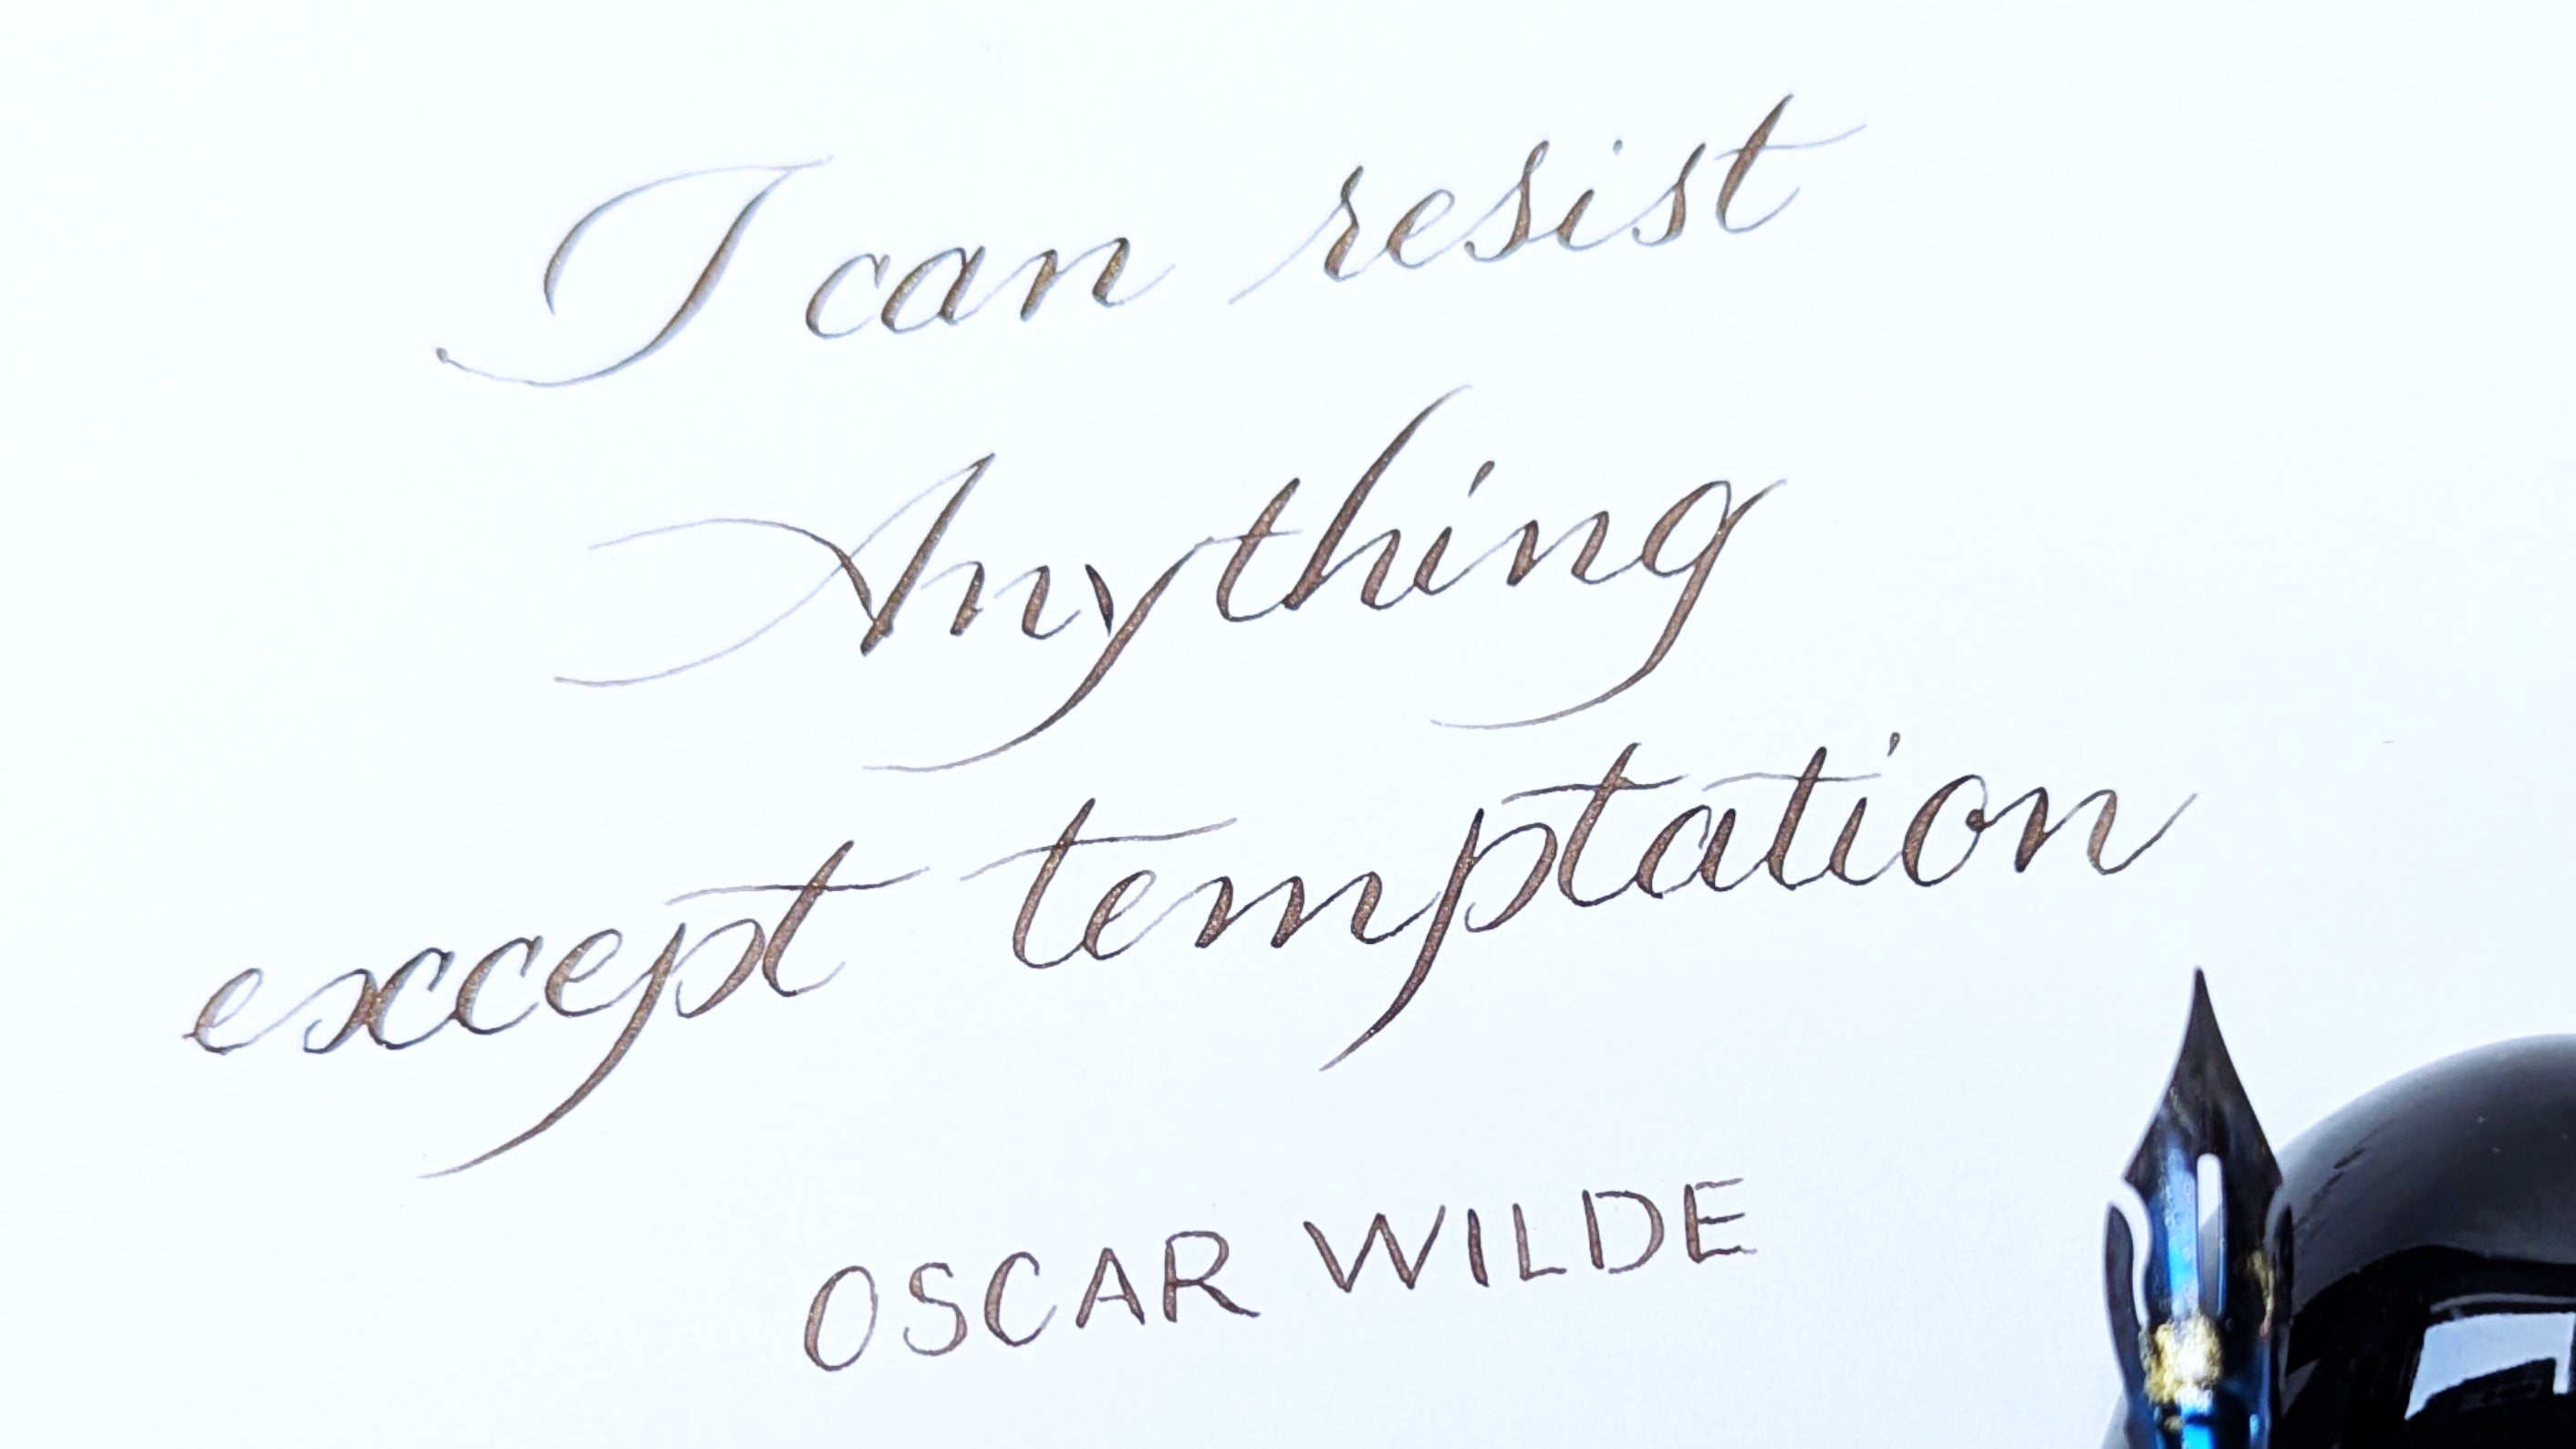 I can resist
Anything
except temptation
OSCAR WILDE